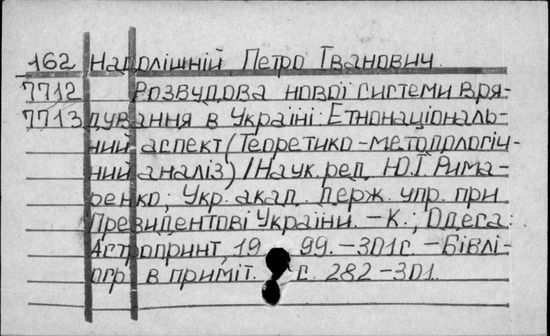 162 Надолішній Петро Іванович.
7712 Розбудова нової системи вря-
7713 дування в Україні: Етнонаціональ-
ний аспект (Теоретико-методологіч-
ний аналіз) / Наук. ред. Ю.І. Рима-
ренко; Укр. акад. держ. упр. при
Президентові України. – К.; Одеса:
Астропринт, 19 99. – 301 с. – Бівлі-
огр. в приміт. с. 282-301.